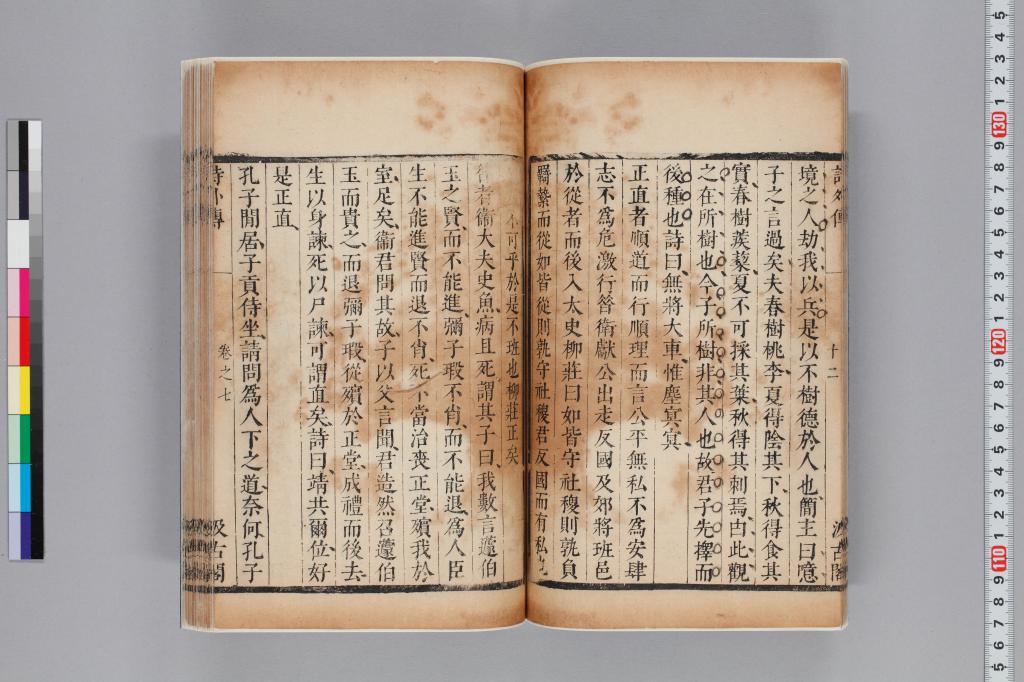 詩外傳
十二
汲古閣
境之人劫我以兵是以不樹德於人也簡主曰噫
子之言過矣夫春樹桃李夏得陰其下秋得食其
實春樹蒺藜夏不可採其葉秋得其刺焉由此觀
之在所樹也今子所樹非其人也故君子先擇而
後種也詩曰無將大車惟塵冥冥
正直者順道而行順理而言公平無私不為安肆
志不為危激行昔衛獻公出走反國及郊將班邑
於從者而後入太史柳莊曰如皆守社稷則孰負
羈縶而從如皆從則孰守社稷君反國而有私也
不可乎於是不班也柳莊正矣
衛大夫史魚病且死謂其子曰我數言蘧伯
玉之賢而不能進彌子瑕不肖而不能退為人臣
生不能進賢而退不肖死不當治喪正堂殯我於
室足矣衛君問其故子以父言聞君造然召蘧伯
玉而貴之而退彌子瑕從殯於正堂成禮而後去
生以身諫死以尸諫可謂直矣詩曰靖共爾位好
是正直
孔子閒居子貢侍坐請問為人下之道奈何孔子
詩外傳
卷之七
汲古閣